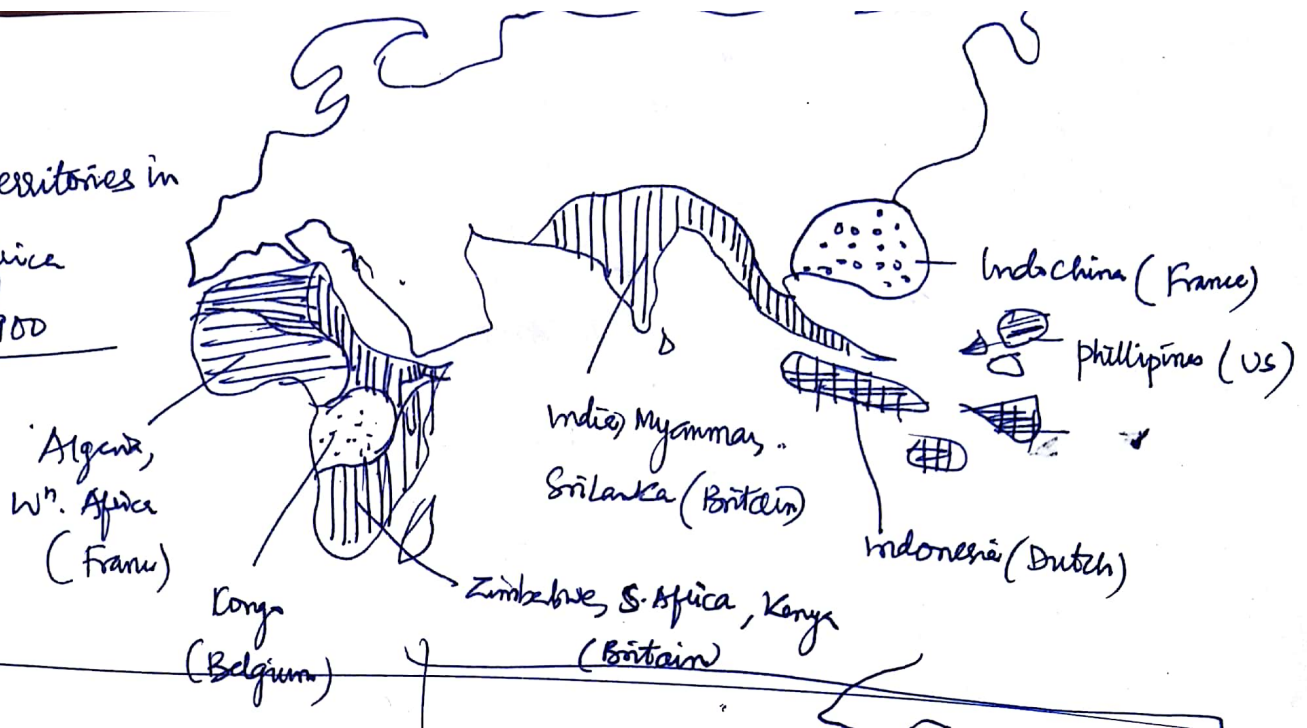 erritories in
rica
900
Algeria,
Wn. Africa
(France)
Kongo
(Belgium)
Zimbabwe, S. Africa, Kenya
(Britain)
India, Myanmar,
SriLanka (Britain)
Indochina (France)
phillipines (US)
Indonesia (Dutch)